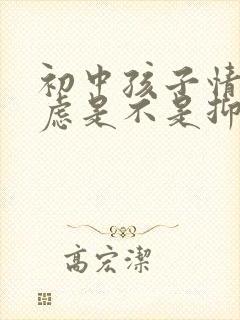 初中孩子情
虑是不是抑
高宏潔